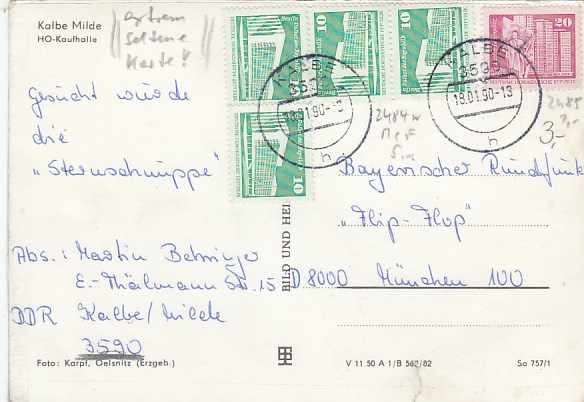 Kalbe Milde
HO-Kaufhalle
extrem
seltene
Karte!
10
10
10
10
20
KALBE
3595
18.01.90-13
h
KALBE
3595
18.01.90-13
h
2484w
MeF
2485
3,-
Gesucht wurde
die
"Sternschnuppe"
Abs.: Martin Behninger
E.-Thälmann Str. 15
DDR Kalbe/Milde
3590
BILD UND HEI
Bayerischer Rundfunk
"Flip-Flop"
D 8000 München 100
Foto: Karpf, Oelsnitz (Erzgeb.)
V 11 50 A 1/B 562/82
So 757/1